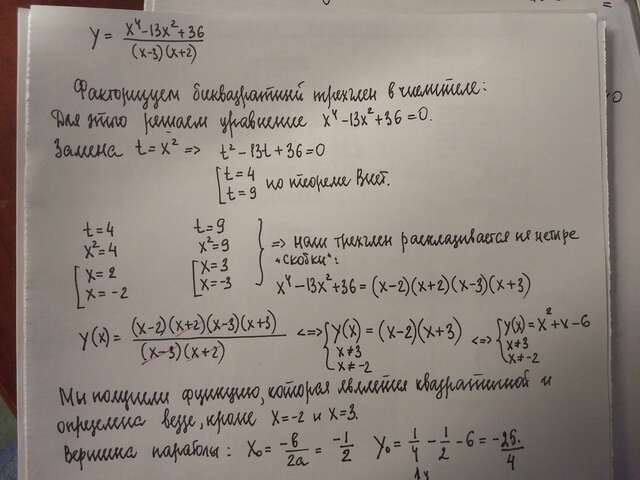 y = (x⁴-13x²+36)/((x-3)(x+2))
Факторизуем биквадратный трехчлен в числителе:
Для этого решаем уравнение x⁴-13x²+36=0.
Замена t=x² => t²-13t+36=0
[t=4
t=9 по теореме Виет.
t=4 t=9
x²=4 x²=9 } => наш трехчлен раскладывается на четыре
"скобки":
[x=2 [x=3
x=-2 x=-3 x⁴-13x²+36=(x-2)(x+2)(x-3)(x+3)
y(x)= ((x-2)(x+2)(x-3)(x+3))/((x-3)(x+2)) <=> {y(x)=(x-2)(x+3) <=> {y(x)=x²+x-6
x≠3 x≠3
x≠-2 x≠-2
Мы получили функцию, которая является квадратичной и
определена везде, кроме x=-2 и x=3.
Вершина параболы: x₀= -b/2a = -1/2 y₀= 1/4 - 1/2 - 6 = -25/4